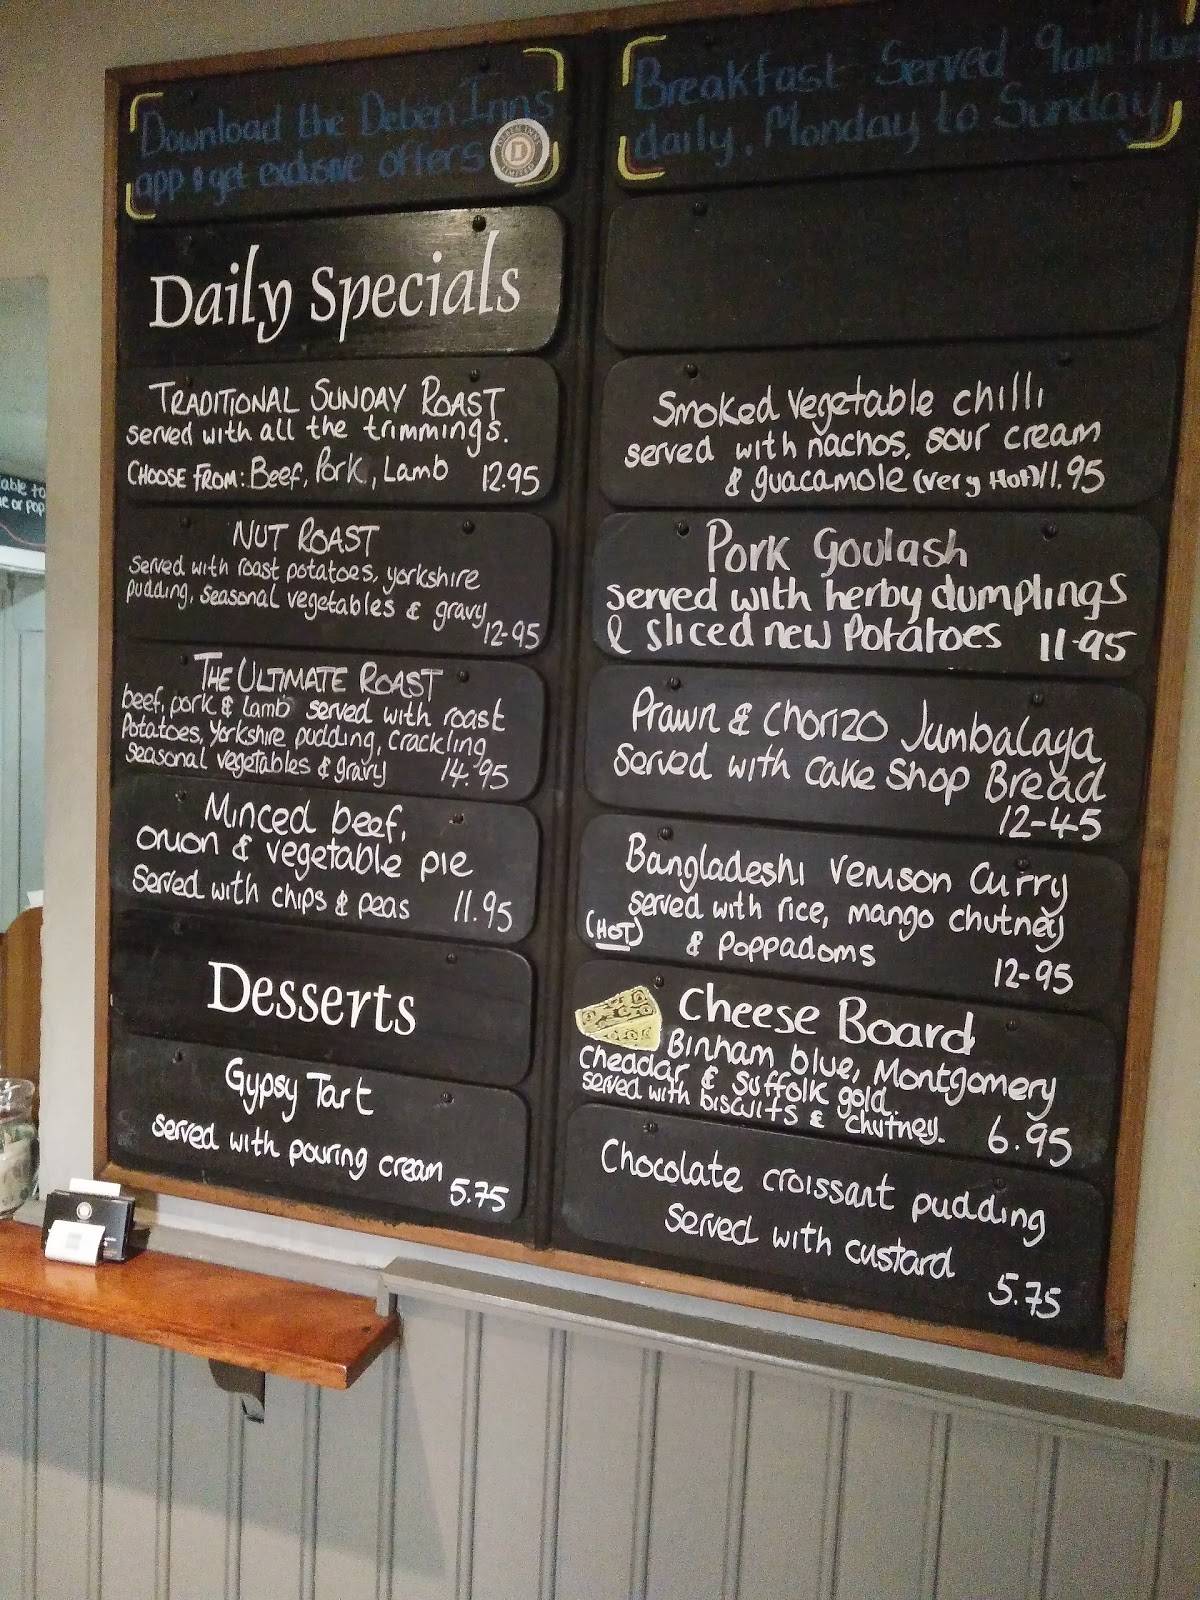 Download the Deben Inns
app & get exclusive offers
DEBEN INNS
D
LIMITED
Daily Specials
TRADITIONAL SUNDAY ROAST
served with all the trimmings.
CHOOSE FROM: Beef, Pork, Lamb 12.95
NUT ROAST
served with roast potatoes, yorkshire
pudding, seasonal vegetables & gravy
12-95
THE ULTIMATE ROAST
beef, pork & lamb served with roast
Potatoes, Yorkshire pudding, crackling
seasonal vegetables & gravy 14.95
Minced beef,
onion & vegetable pie
Served with chips & peas 11.95
Desserts
Gypsy Tart
served with pouring cream
5.75
Breakfast Served 9am-11am
daily, Monday to Sunday
Smoked vegetable chilli
served with nachos, sour cream
& guacamole (very Hot) 11.95
Pork Goulash
served with herby dumplings
& sliced new Potatoes 11-95
Prawn & Chorizo Jumbalaya
Served with Cake Shop Bread
12-45
Bangladeshi venison Curry
served with rice, mango chutney
(HOT) & Poppadoms
12-95
Cheese Board
Binham blue, Montgomery
Cheddar & Suffolk gold
served with biscuits & chutney. 6.95
Chocolate croissant pudding
Served with custard
5.75
able to